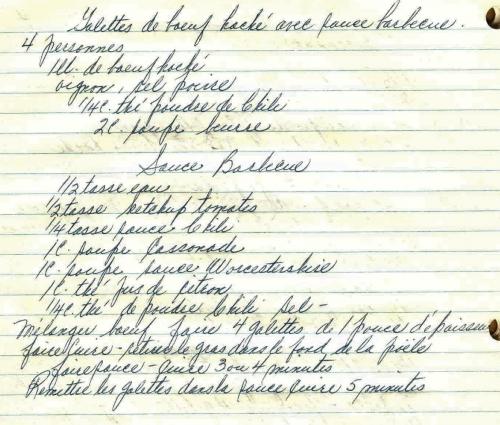 Galettes de boeuf haché avec sauce barbecue.
4 personnes
1 lb. de boeuf haché
oignon, sel poivre
1/4 c. thé poudre de Chili
2 c. soupe beurre
Sauce Barbecue
1/2 tasse eau
1/2 tasse ketchup tomates
1/4 tasse sauce Chili
1 c. soupe Cassonade
1 c. soupe sauce Worcestershire
1 c. thé jus de citron
1/4 c. thé de poudre Chili Sel -
Mélanger boeuf faire 4 galettes de 1 pouce d'épaisseur
faire Cuire - retirer le gras dans le fond de la poêle
faire sauce - Cuire 3 ou 4 minutes
Remettre les galettes dans la sauce Cuire 5 minutes